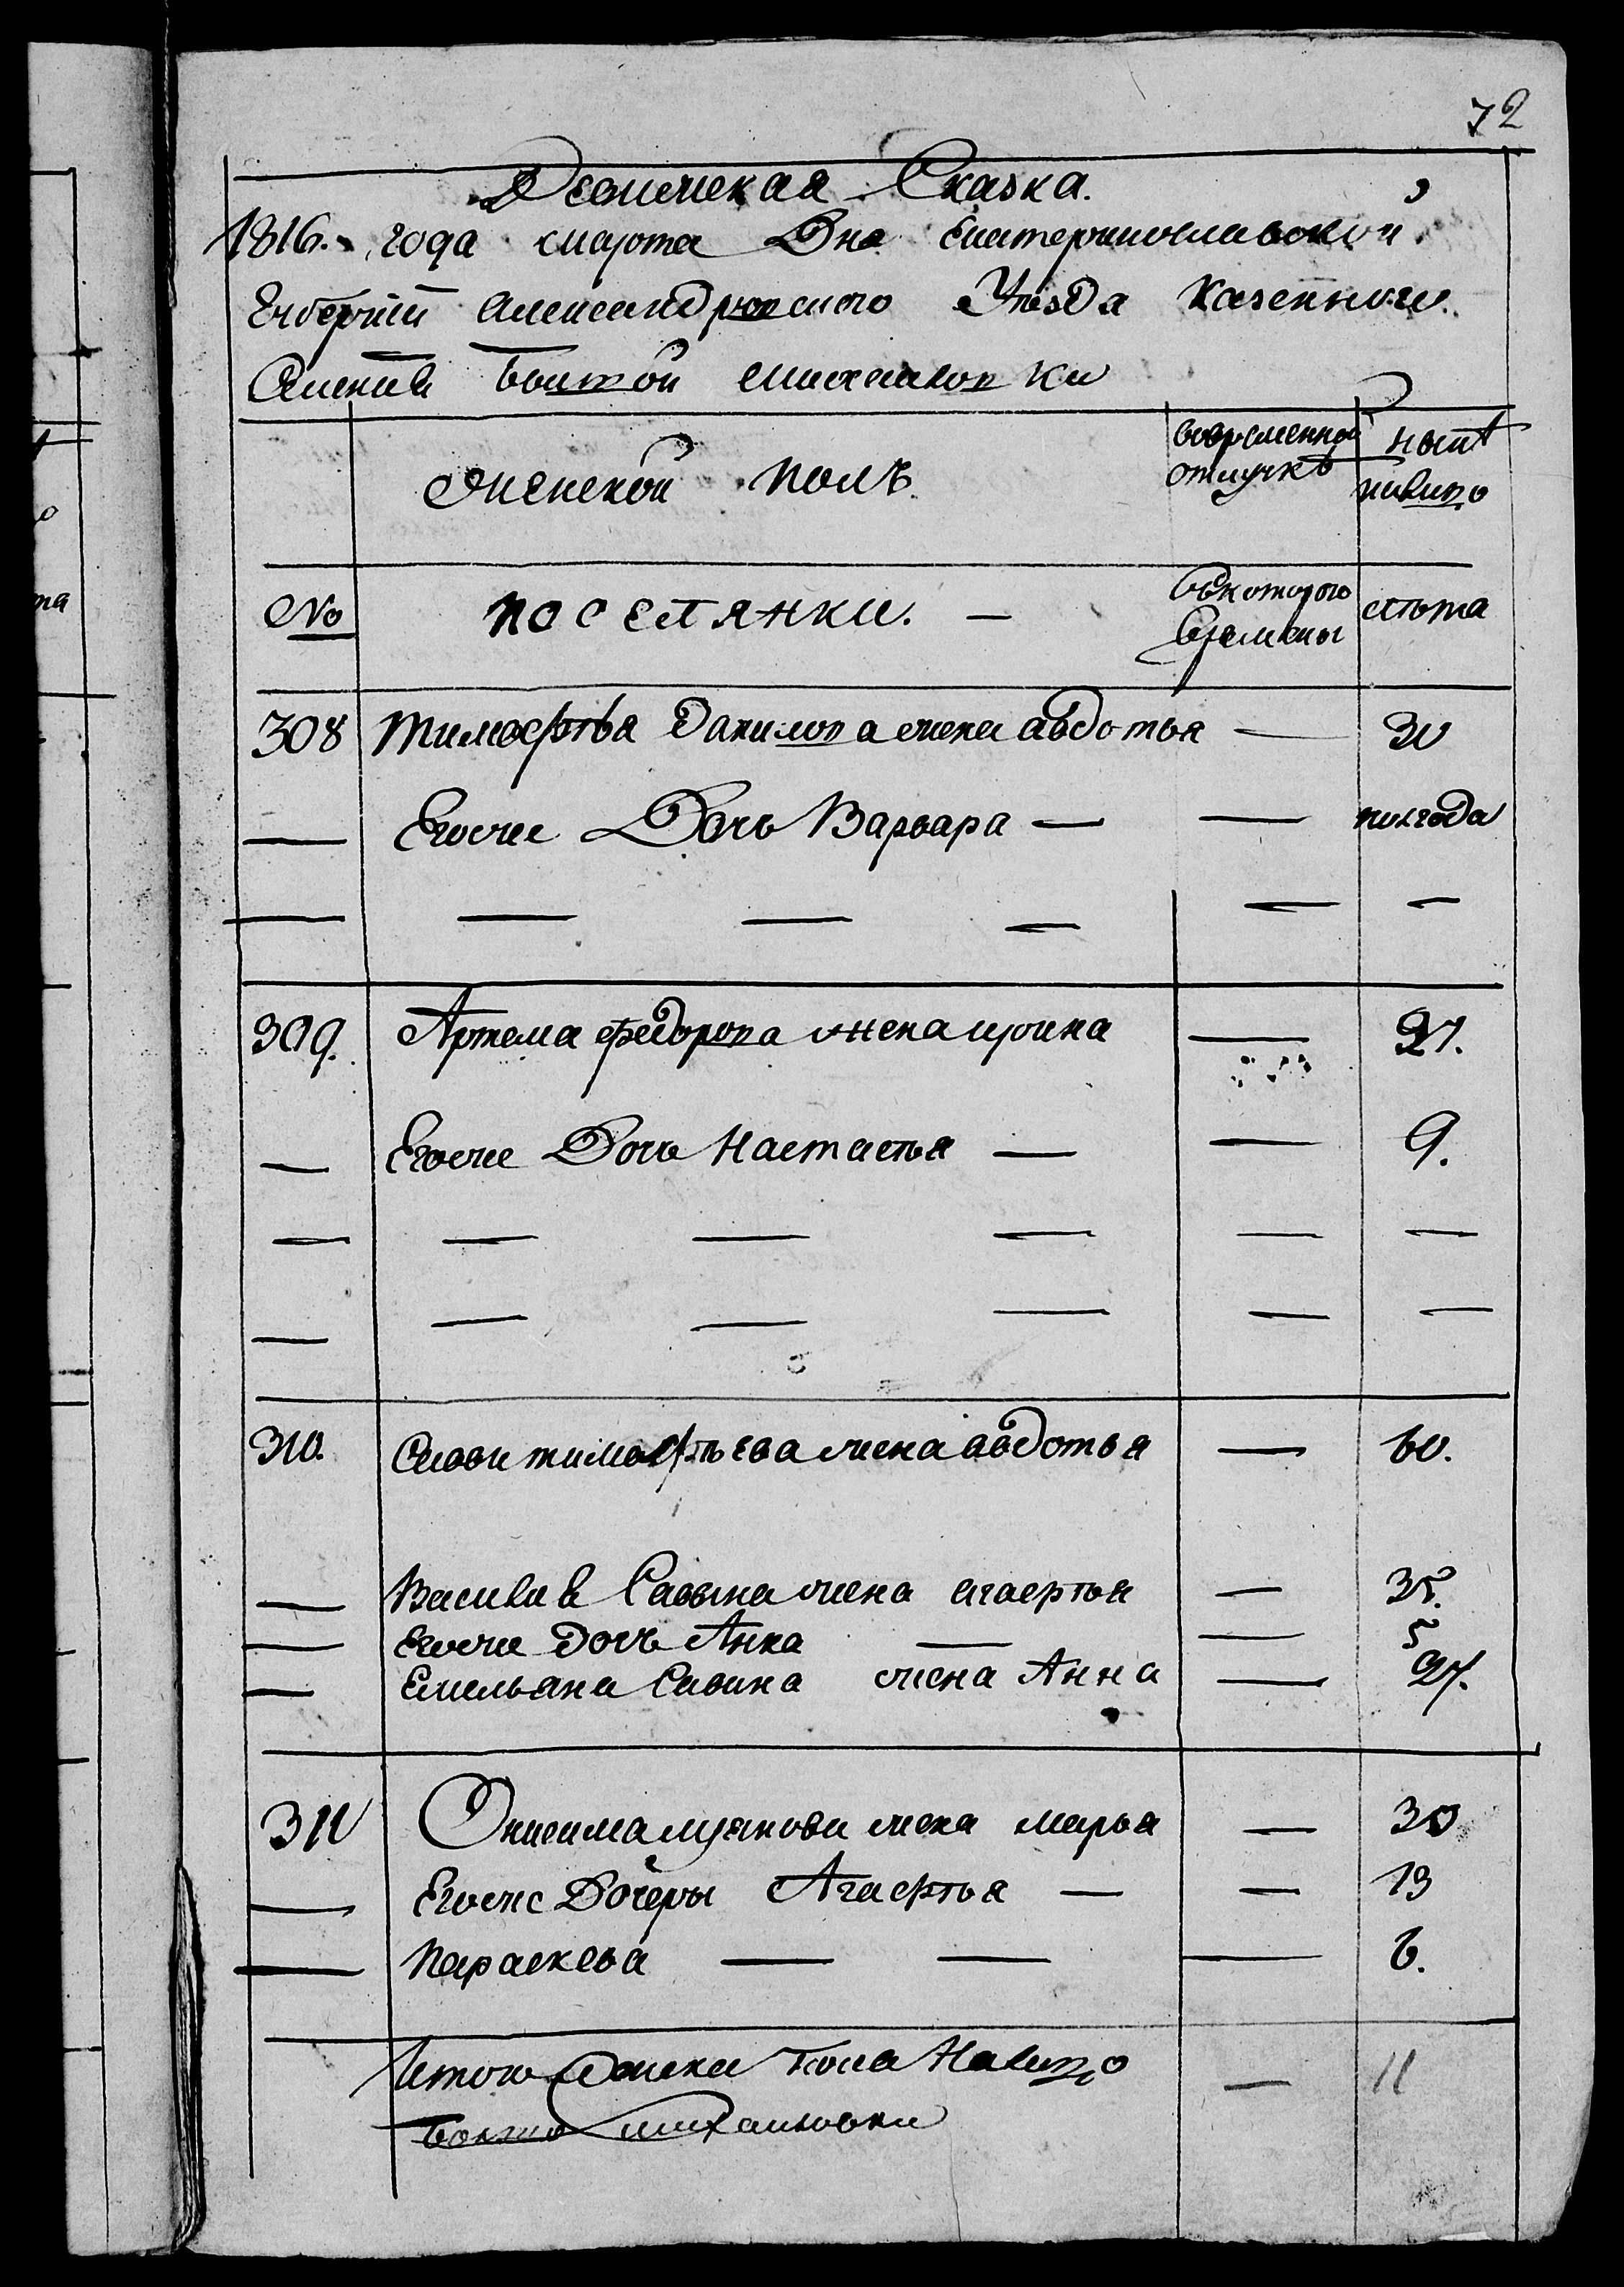 72
Ревижская Сказка.
1816. года марта Дня Екатеринославской
Губернии Александровского Уезда Казенного
Селения Болшой Михайловки
Женской полъ.
вовременной отлучкѣ
нынѣ налицо
№
поселянки. —
съкоторого времены
лѣта
308 Тимофѣя Данилова жена авдотья — 30
— Егоже Дочь Варвара — — полгода
— — — — — —
309. Артема федорова жена ирина — 27.
— Егоже Дочь Настасья — — 9.
— — — — — —
— — — — — —
310. Савы тимофѣева жена авдотья — 60.
— Василия Савина жена агафья — 35.
— Егоже дочь Анна — — 5
— Емельяна Савина жена Анна — 27.
311 Онисима лукянова жена марья — 30
— Егоже Дочеры Агафья — — 13
— Параскева — — — 6.
Итого Женска пола Налицо — 11
Болшо Михайловки